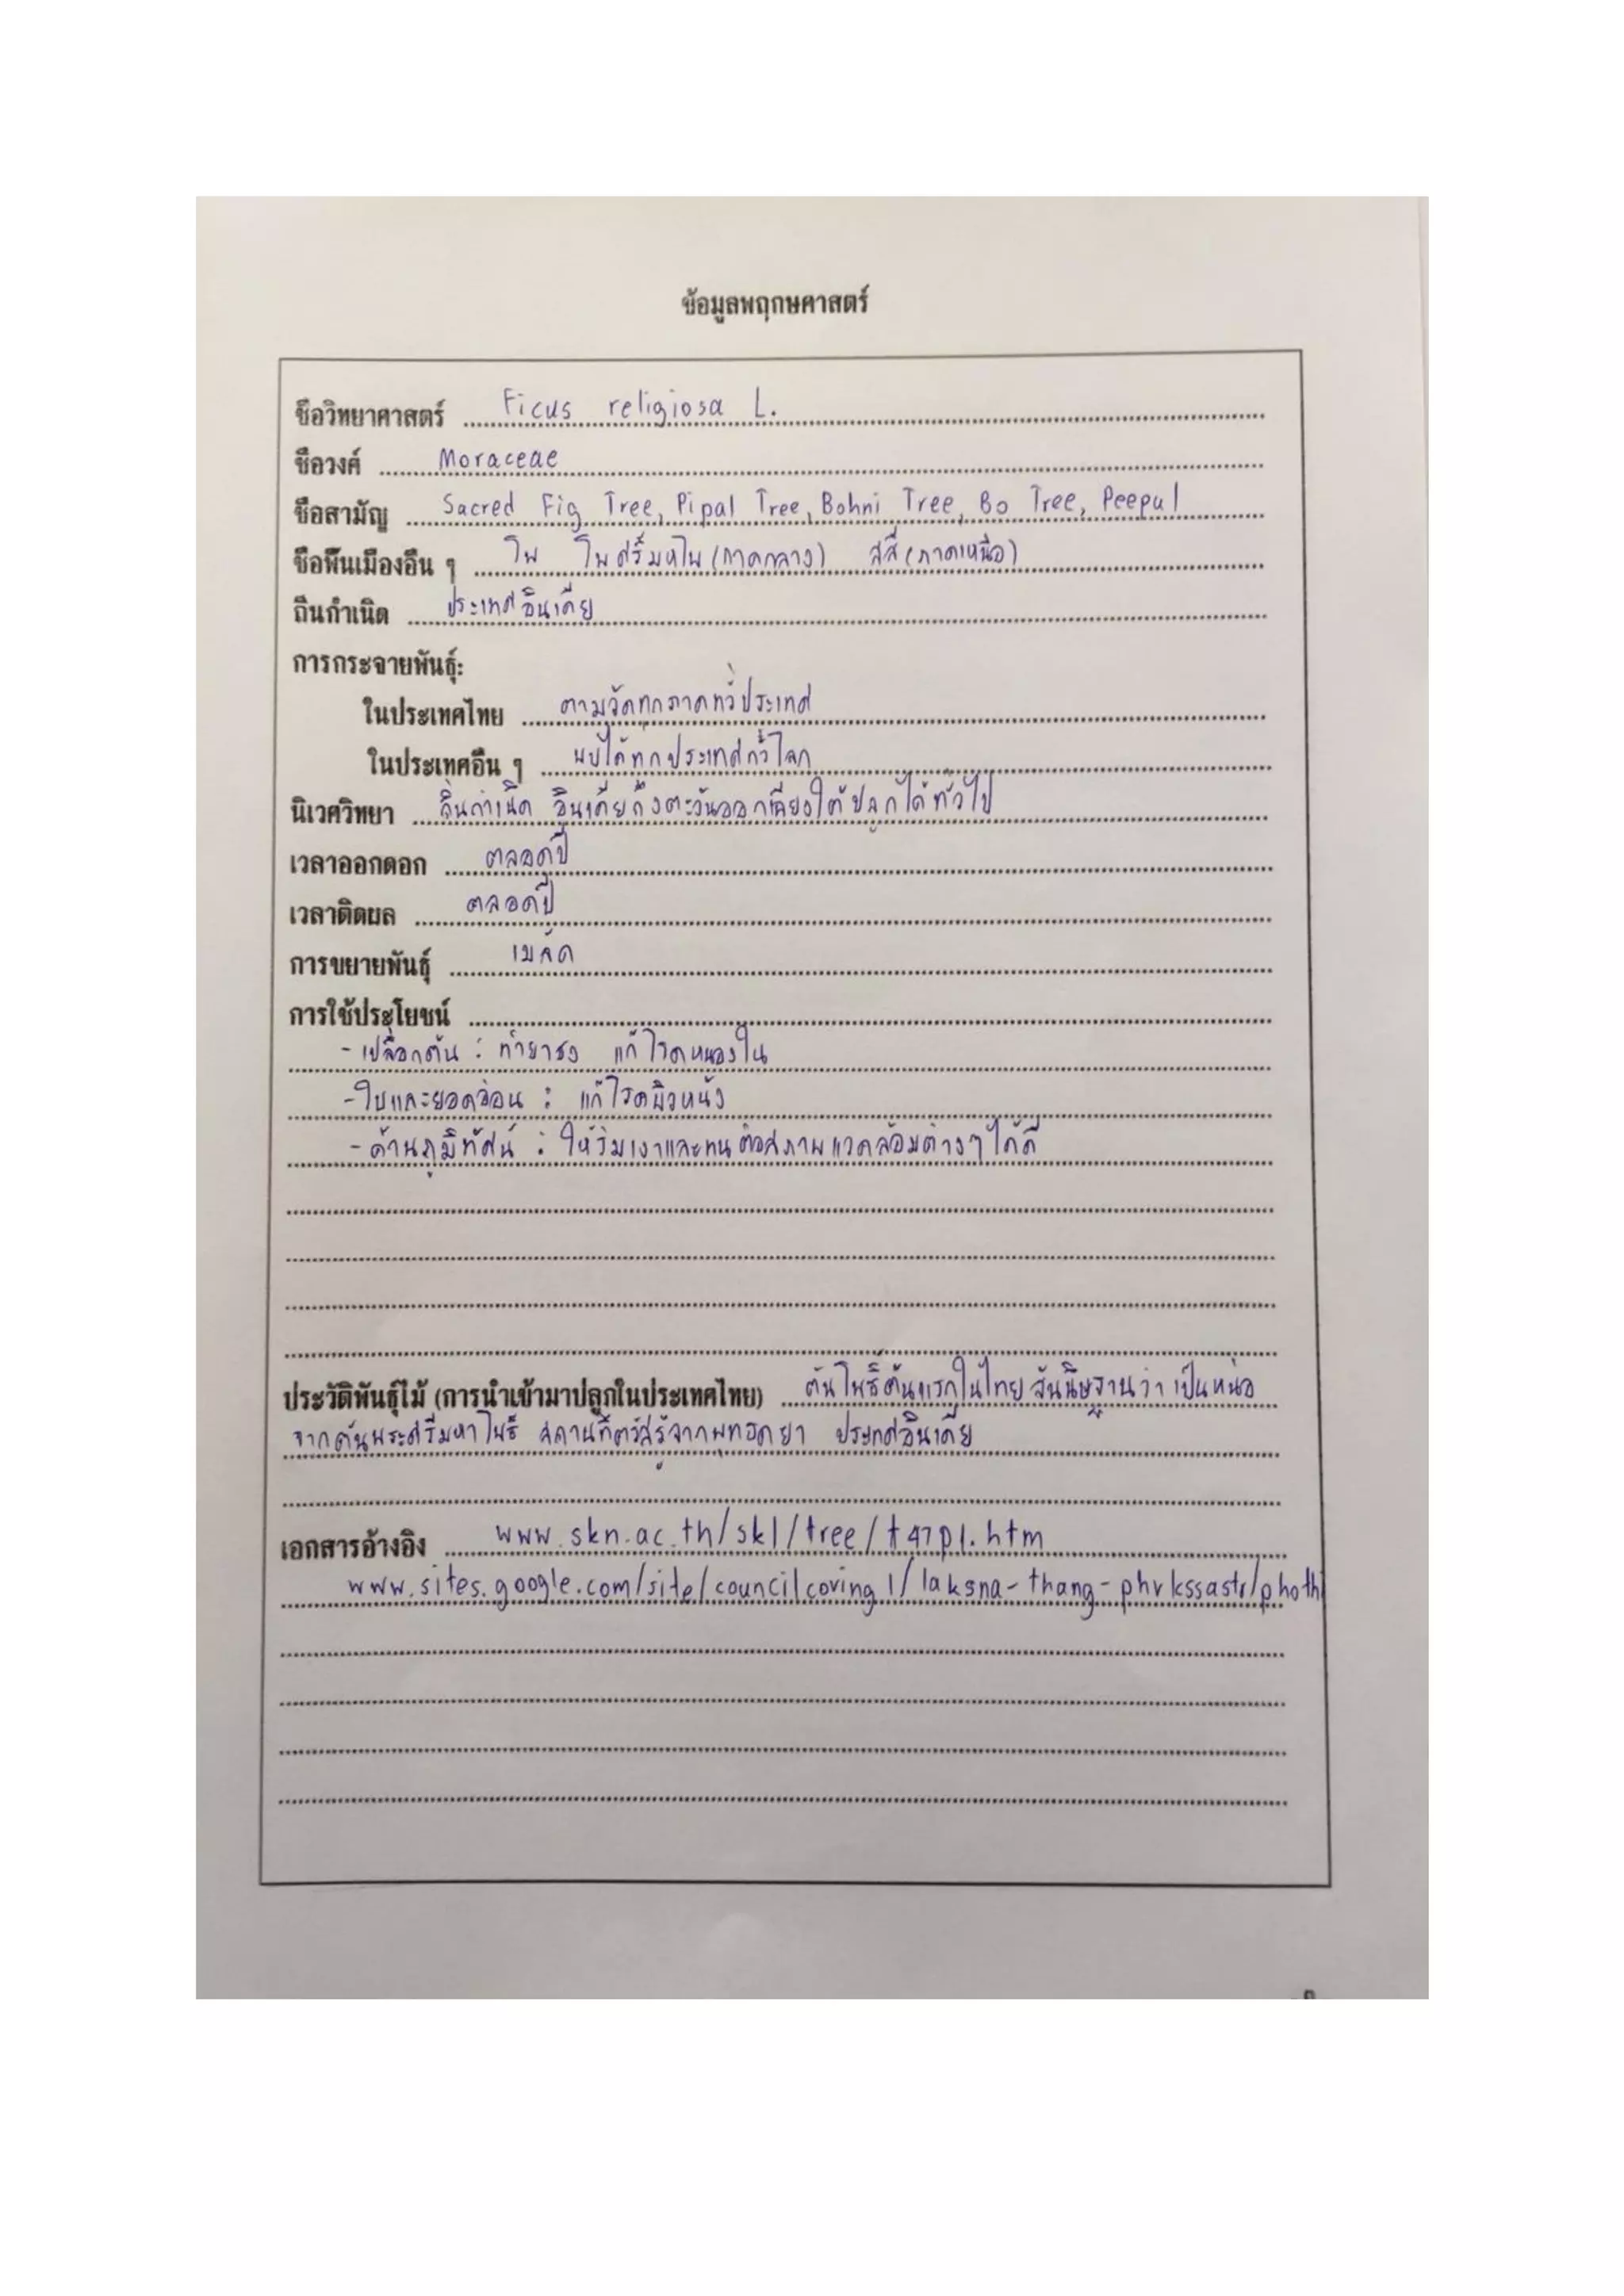 ข้อมูลพฤกษศาสตร์
ชื่อวิทยาศาสตร์ Ficus religiosa L.
ชื่อวงศ์ Moraceae
ชื่อสามัญ Sacred Fig Tree, Pipal Tree, Bohni Tree, Bo Tree, Peepul
ชื่อพื้นเมืองอื่น ๆ โพ โพศรีมหาโพ (ภาคกลาง) สลี (ภาคเหนือ)
ถิ่นกำเนิด ประเทศอินเดีย
การกระจายพันธุ์:
ในประเทศไทย ตามวัดทุกภาคทั่วประเทศ
ในประเทศอื่น ๆ พบได้ทุกประเทศทั่วโลก
นิเวศวิทยา ถิ่นกำเนิด อินเดียถึงตะวันออกเฉียงใต้ปลูกได้ทั่วไป
เวลาออกดอก ตลอดปี
เวลาติดผล ตลอดปี
การขยายพันธุ์ เมล็ด
การใช้ประโยชน์
- เปลือกต้น : ทำยาชง แก้โรคหนองใน
- ใบและยอดอ่อน : แก้โรคผิวหนัง
- ด้านภูมิทัศน์ : ให้ร่มเงาและทนต่อสภาพแวดล้อมต่างๆได้ดี
ประวัติพันธุ์ไม้ (การนำเข้ามาปลูกในประเทศไทย) ต้นโพธิ์ต้นแรกในไทย สันนิษฐานว่า เป็นหน่อ
จากต้นพระศรีมหาโพธิ์ สถานที่ตรัสรู้จากพุทธคยา ประเทศอินเดีย
เอกสารอ้างอิง www.skn.ac.th/skl/tree/t47p1.htm
www.sites.google.com/site/councilcoving1/laksna-thang-phvkssastr/photh